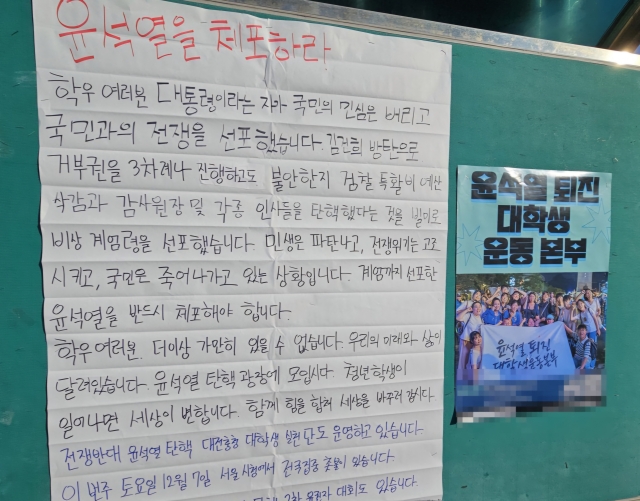 윤석열을 체포하라
학우 여러분 대통령이라는 자가 국민의 민심은 버리고
국민과의 전쟁을 선포했습니다. 김건희 방탄으로
거부권을 3차례나 진행하고도 불안한지 검찰 특활비 예산
삭감과 감사원장 및 각종 인사들을 탄핵했다는 것을 빌미로
비상 계엄령을 선포했습니다. 민생은 파탄나고, 전쟁위기는 고조
시키고, 국민은 죽어나가고 있는 상황입니다. 계엄까지 선포한
윤석열을 반드시 체포해야 합니다.
학우 여러분. 더이상 가만히 있을 수 없습니다. 우리의 미래와 삶이
달려있습니다. 윤석열 탄핵 광장에 모입시다. 청년학생이
일어나면 세상이 변합니다. 함께 힘을 합쳐 세상을 바꾸러 갑시다
전쟁반대 윤석열 탄핵 대전충청 대학생 실천단도 운영하고 있습니다.
이번주 토요일 12월 7일 서울 시청에서 전국집중 촛불이 있습니다.
대회도 있습니다.
윤석열 퇴진
대학생
운동 본부
윤석열 퇴진
대학생운동본부